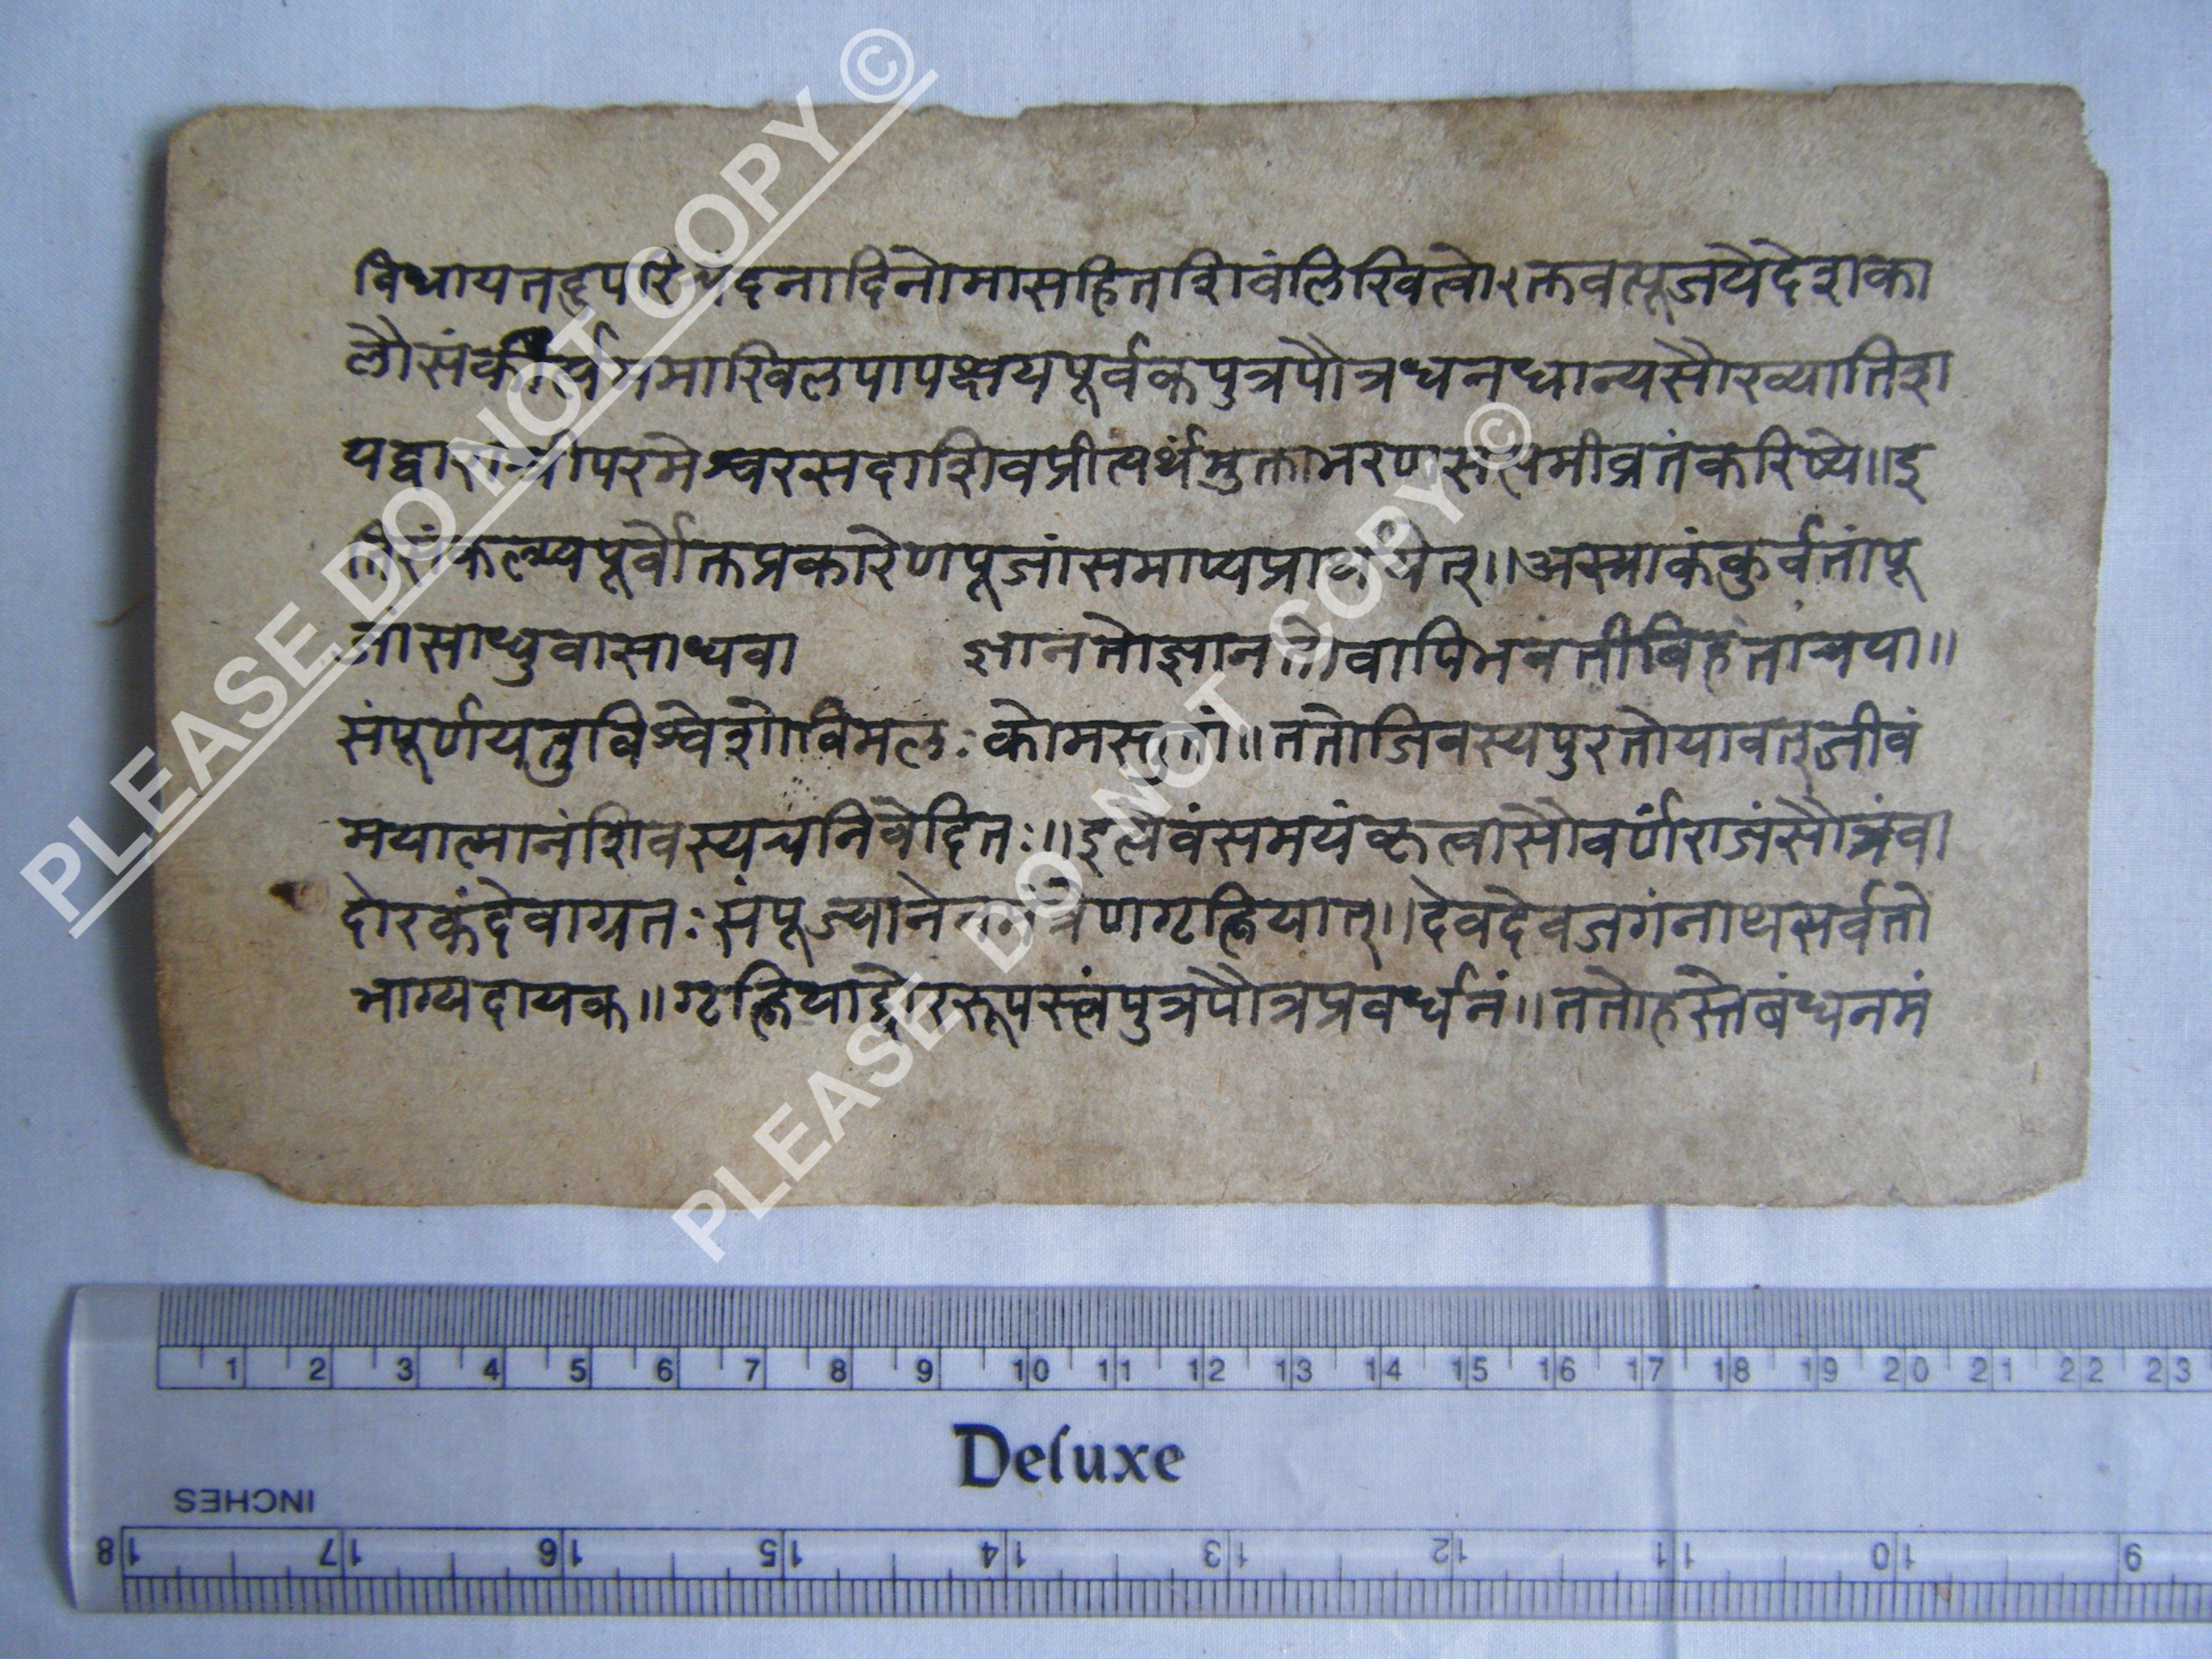 विधायतदूपरिचंदनादिनोमासहितशिवंलिखित्वोक्तवत्पूजयेदेशका
लौसंकीर्त्यममाखिलपापक्षयपूर्वकपुत्रपौत्रधनधान्यसौख्यातिश
यद्वाराश्रीपरमेश्वरसदाशिवप्रीत्यर्थंमुक्ताभरणसप्तमीव्रतंकरिष्ये॥इ
तिसंकल्प्यपूर्वोक्तप्रकारेणपूजांसमाप्यप्रार्थयेत्॥अस्माकंकुर्वतांपू
जांसाधुवासाध्यवा ज्ञानतोज्ञानतोवापिभवतीविहंतांचया॥
संपूर्णयतुविश्वेशोविमलः कोमस्तुतां॥ततोजिवस्यपुरतोयावत्जीवं
मयात्मानंशिवस्यचनिवेदितः॥इत्येवंसमयंकृत्वासौवर्णंराजंसौत्रंवा
दोरकंदेवाग्रतः संपूज्यानेनमंत्रेणगृह्णियात्॥देवदेवजगंनाथसर्वतो
भाग्यदायक॥गृह्णियाद्दोररूपस्त्वंपुत्रपौत्रप्रवर्धनं॥ततोहस्तेबंधनमं
PLEASE DO NOT COPY ©
PLEASE DO NOT COPY ©
1 2 3 4 5 6 7 8 9 10 11 12 13 14 15 16 17 18 19 20 21 22 23
Deluxe
INCHES
18 17 16 15 14 13 12 11 10 9